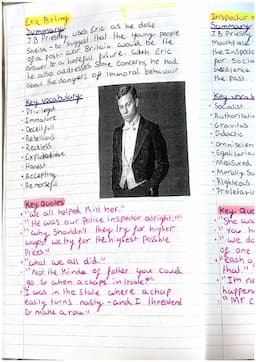 Eric Birling
Summary
J.B Priestley uses Eric as he does
Sheila - to suggest that the young people
of a post war Britain would be the
answer to a hopeful future. With Eric
he also addresses some concerns he had
about the dangers of immoral behaviour
Key vocabulary
• Privileged
• Immature
• Deceitful
• Rebellious
• Reckless
• Exploitative
• Honest
• Accepting
• Remorseful
Key Quotes
• "We all helped kill her."
• "He was our Police inspector alright."
• "Why shouldn't they try for higher
wages? we try for the highest possible
Prices"
• "what we all did."
• "Not the kind of father you could
go to when a chaps in trouble"
I was in the state where a chap
easily turns nasty - and I threatend
to make a row"
Inspector
Summary
J.B Priestl
Mouthpiece
the inspec
for Socia
audience
the past.
Key vocab
• Socialist
• Authoritati
• Gravitas
• Didactic
• Omniscien
• Egalitaria
• Measured
• Morally Su
• Righteous
• Prole
Key Quo
• "She wa
• "You h
• "we do
of one
• "each o
that."
• "I'm n
happen
• "Mr C